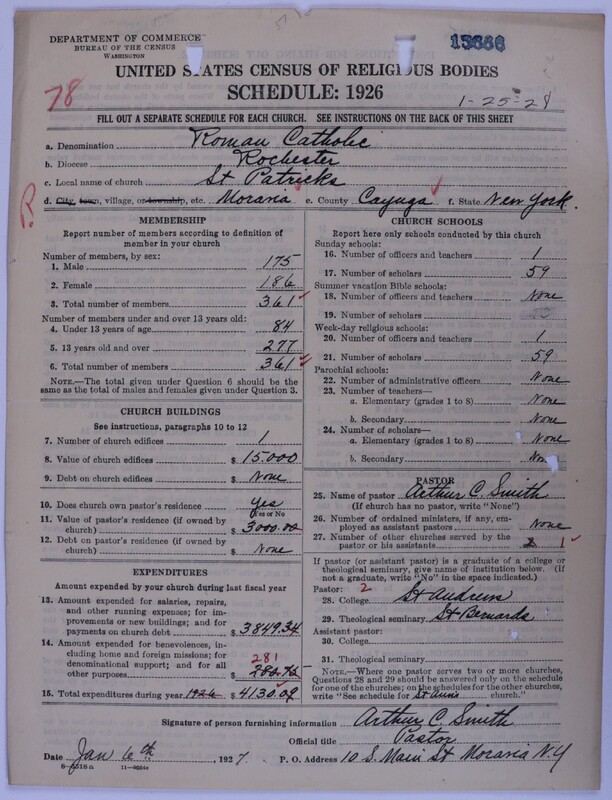 DEPARTMENT OF COMMERCE
BUREAU OF THE CENSUS
WASHINGTON
UNITED STATES CENSUS OF RELIGIOUS BODIES
SCHEDULE: 1926
78
1-25-28
FILL OUT A SEPARATE SCHEDULE FOR EACH CHURCH. SEE INSTRUCTIONS ON THE BACK OF THIS SHEET
a. Denomination Roman Catholic
b. Diocese Rochester
c. Local name of church St Patricks
d. City, town, village, or township, etc. Moravia e. County Cayuga f. State New York.
R
MEMBERSHIP
Report number of members according to definition of member in your church
Number of members, by sex:
1. Male 175
2. Female 186
3. Total number of members 361
Number of members under and over 13 years old:
4. Under 13 years of age 84
5. 13 years old and over 277
6. Total number of members 361
NOTE.—The total given under Question 6 should be the
same as the total of males and females given under Question 3.
CHURCH BUILDINGS
See instructions, paragraphs 10 to 12
7. Number of church edifices 1
8. Value of church edifices $ 15.000
9. Debt on church edifices $ None
10. Does church own pastor's residence Yes
(Yes or No)
11. Value of pastor's residence (if owned by
church) $ 3000.00
12. Debt on pastor's residence (if owned by
church) $ None
EXPENDITURES
Amount expended by your church during last fiscal year
13. Amount expended for salaries, repairs,
and other running expenses; for im-
provements or new buildings; and for
payments on church debt $ 3849.34
14. Amount expended for benevolences, in-
cluding home and foreign missions; for
denominational support; and for all
other purposes 281
$ 280.75
15. Total expenditures during year 1926 $ 4130.09
CHURCH SCHOOLS
Report here only schools conducted by this church
Sunday schools:
16. Number of officers and teachers 1
17. Number of scholars 59
Summer vacation Bible schools:
18. Number of officers and teachers None
19. Number of scholars
Week-day religious schools:
20. Number of officers and teachers 1
21. Number of scholars 59
Parochial schools:
22. Number of administrative officers None
23. Number of teachers—
a. Elementary (grades 1 to 8) None
b. Secondary None
24. Number of scholars—
a. Elementary (grades 1 to 8) None
b. Secondary
PASTOR
25. Name of pastor Arthur C. Smith
(If church has no pastor, write "None")
26. Number of ordained ministers, if any, em-
ployed as assistant pastors None
27. Number of other churches served by the
pastor or his assistants 2 1
If pastor (or assistant pastor) is a graduate of a college or
theological seminary, give name of institution below. (If
not a graduate, write "No" in the space indicated.)
Pastor: 2
28. College St Andrews
29. Theological seminary St Bernards
Assistant pastor:
30. College
31. Theological seminary
NOTE.—Where one pastor serves two or more churches,
Questions 28 and 29 should be answered only on the schedule
for one of the churches; on the schedules for the other churches,
write "See schedule for St Anns church."
Signature of person furnishing information Arthur C. Smith
Official title Pastor
Date Jan 6th, 1927. P. O. Address 10 S. Main St Moravia N.Y